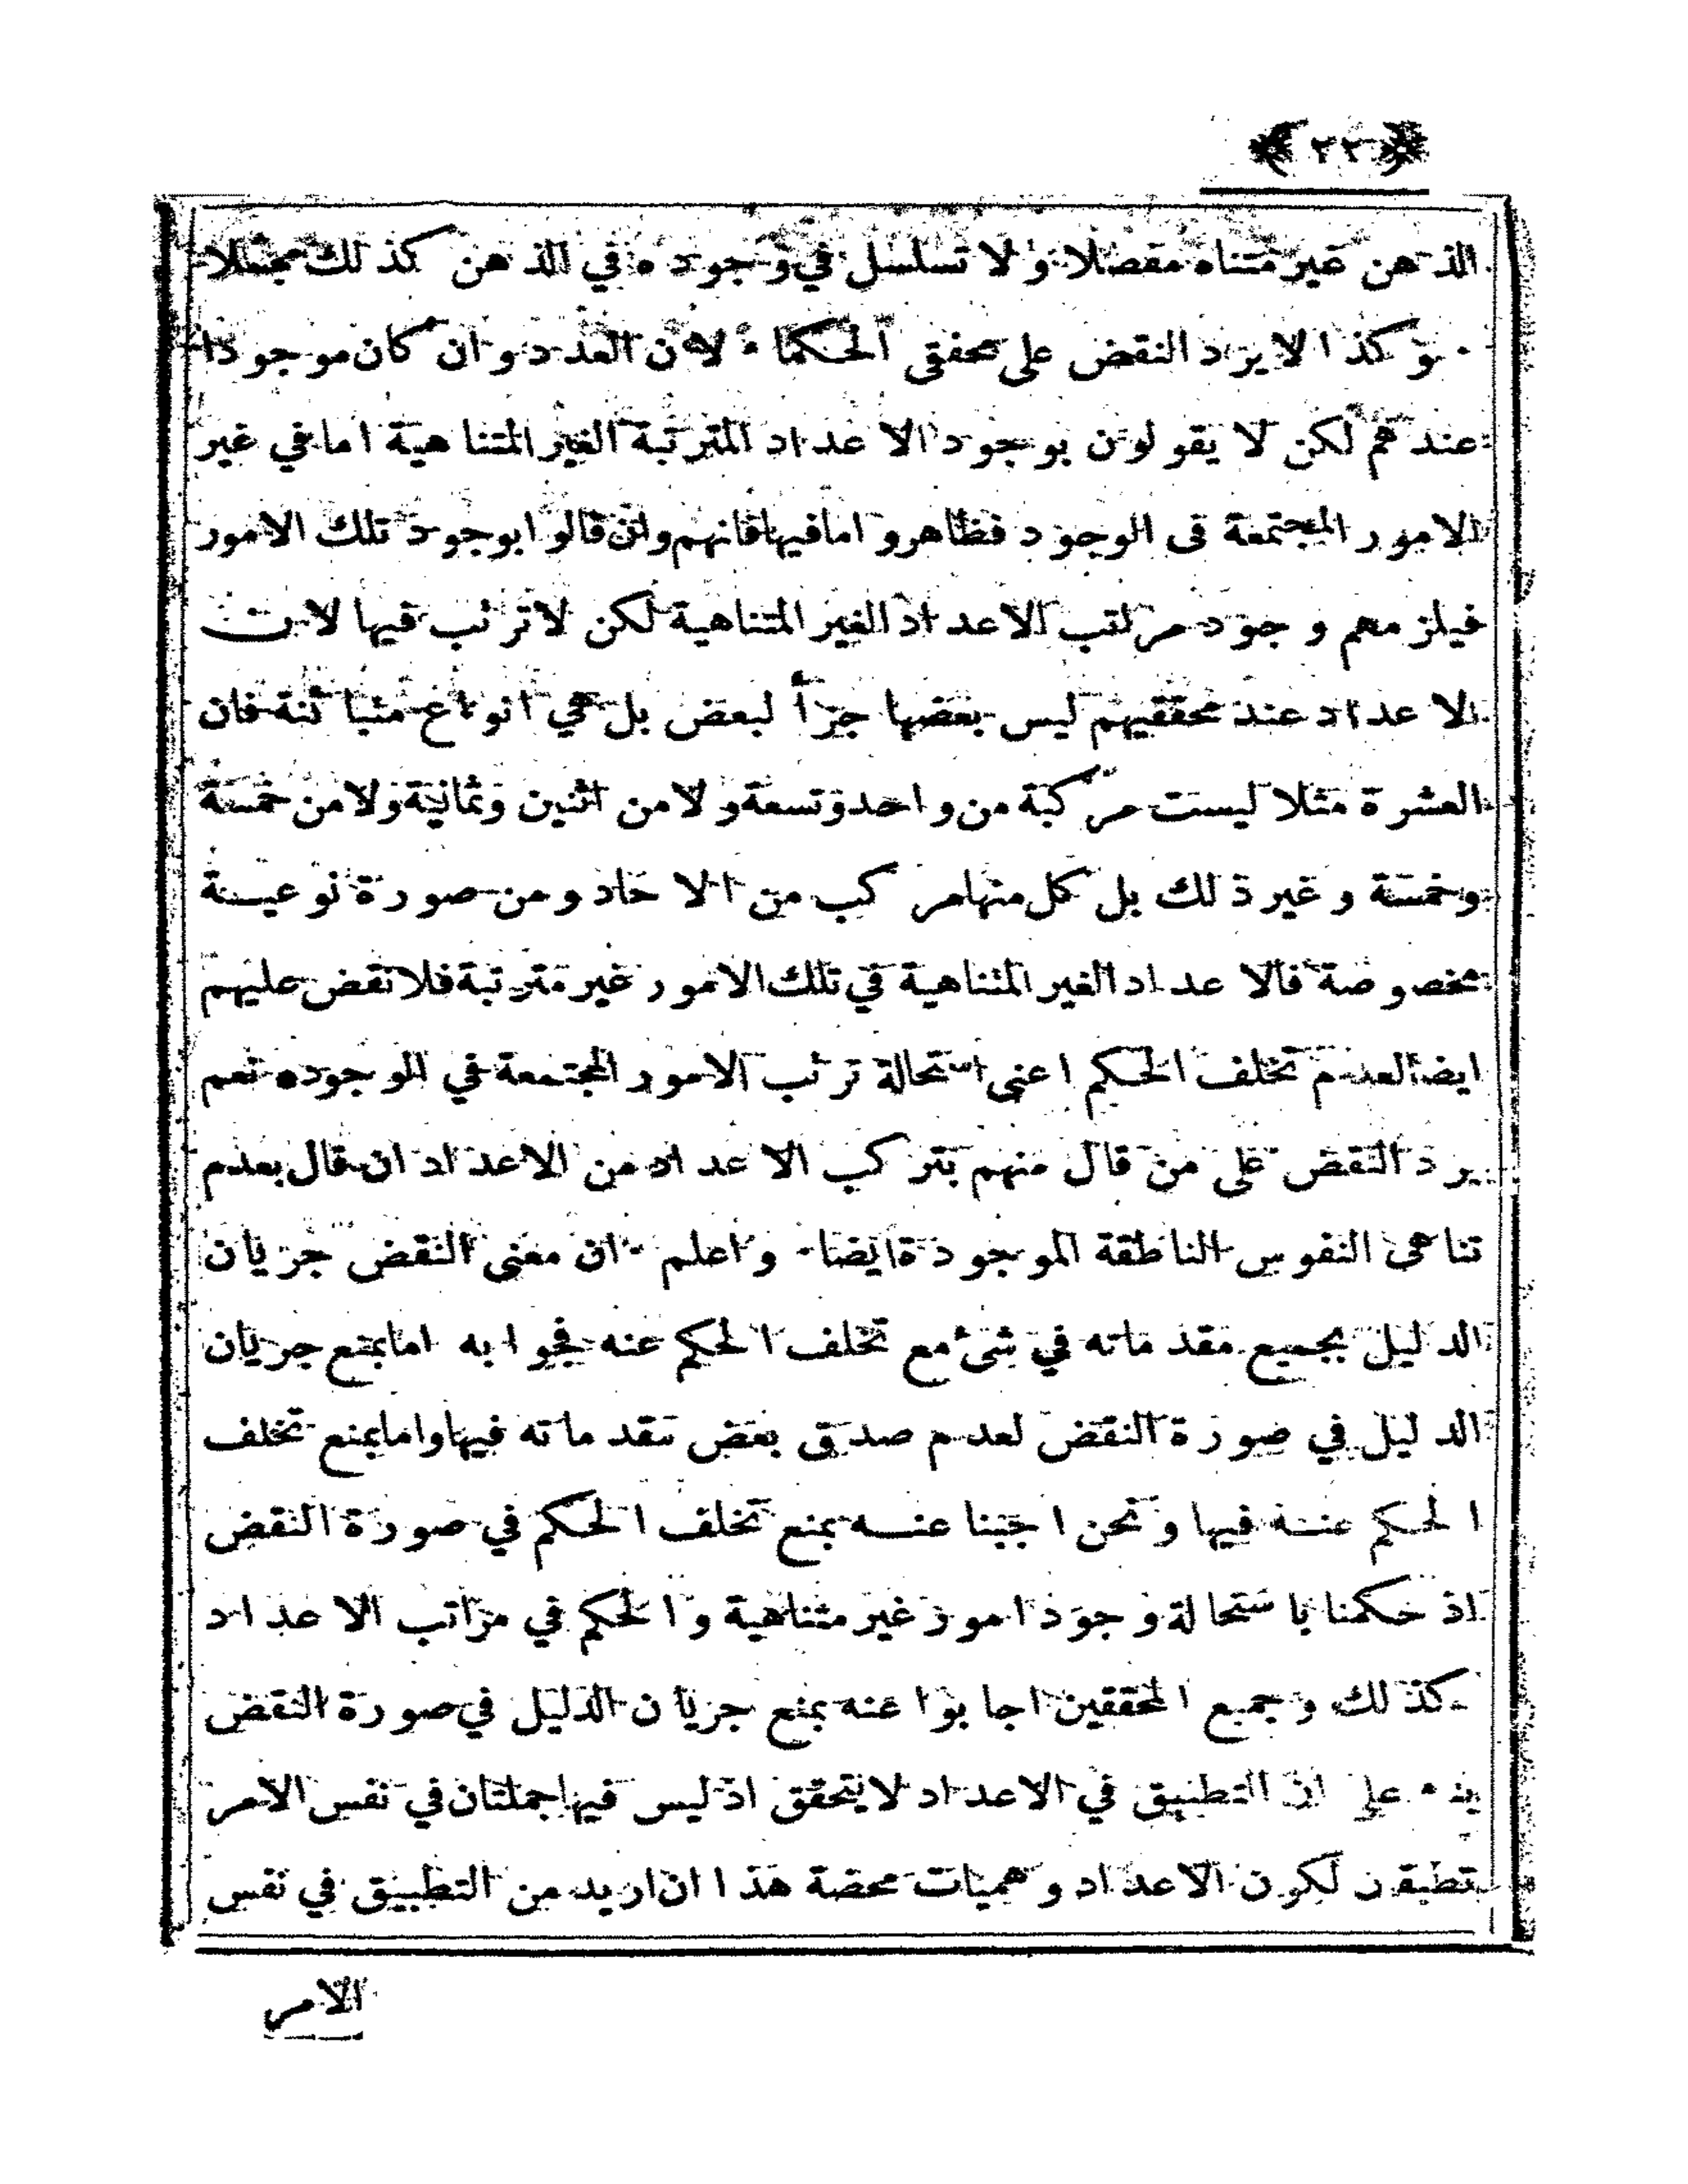 ﴿٢٢﴾
الذهن غير متناه مفصلا ولا تسلسل في وجوده في الذهن كذلك مجملا
وكذا لا يرد النقض على محققى الحكماء لان العدد وان كان موجودا
عندهم لكن لا يقولون بوجود الاعداد المترتبة الغير المتناهية اما في غير
الامور المجتمعة في الوجود فظاهر واما فيها فانهم وان قالوا بوجود تلك الامور
فيلزمهم وجود مراتب الاعداد الغير المتناهية لكن لا ترتب فيها لان
الاعداد عند محققيهم ليس بعضها جزأ لبعض بل هي انواع متبائنة فان
العشرة مثلا ليست مركبة من واحد وتسعة ولا من اثنين وثمانية ولا من خمسة
وخمسة وغير ذلك بل كل منها مركب من الاحاد ومن صورة نوعيـة
مخصوصة فالاعداد الغير المتناهية في تلك الامور غير مترتبة فلا نقض عليهم
ايضا لعدم تخلف الحكم اعنى استحالة ترتب الامور المجتمعة في الوجود نعم
يرد النقض على من قال منهم بتركب الاعداد من الاعداد ان قال بعدم
تناهى النفوس الناطقة الموجودة ايضا واعلم ان معنى النقض جريان
الدليل بجميع مقدماته في شئ مع تخلف الحكم عنه فجوابه اما بمنع جريان
الدليل في صورة النقض لعدم صدق بعض مقدماته فيها واما بمنع تخلف
الحكم عنـه فيها ونحن اجبنا عنـه بمنع تخلف الحكم في صورة النقض
اذ حكمنا باستحالة وجود امور غير متناهية والحكم في مراتب الاعداد
كذلك وجميع المحققين اجابوا عنه بمنع جريان الدليل في صورة النقض
بناء على ان التطبيق في الاعداد لا يتحقق اذ ليس فيها جملتان في نفس الامر
تطبقان لكون الاعداد وهميات محضة هذا ان اريد من التطبيق في نفس
الامر